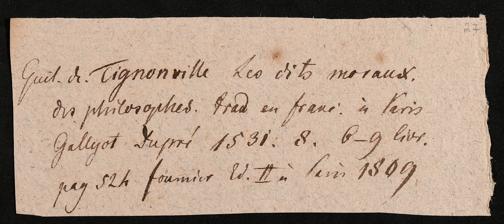 27
Guil. de. Tignonville Les dits moraux.
des philosophes. trad en franc. à Paris
Gallyot Dupré 1531. 8. 6-9 livr.
pag 524 fournier Ed. II à Paris 1809